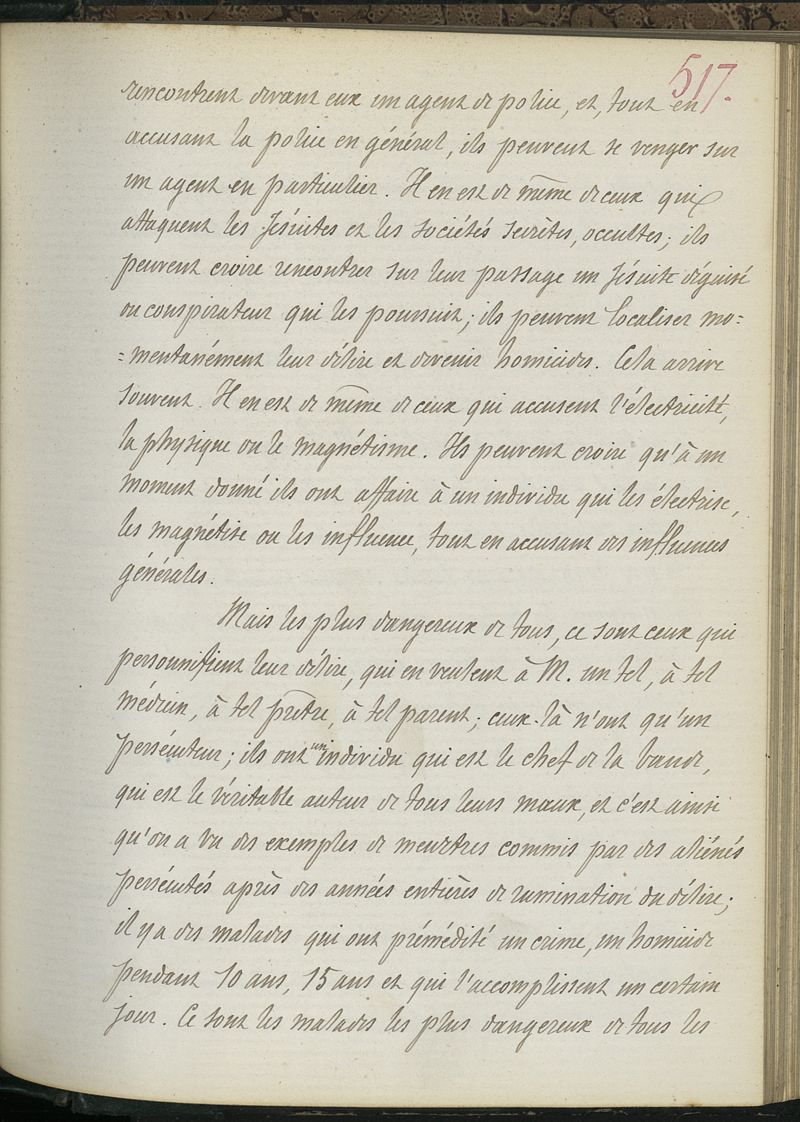 517.
rencontrent devant eux un agent de police, et, tout en
accusant la police en général, ils peuvent se venger sur
un agent en particulier. Il en est de même de ceux qui
attaquent les Jésuites et les sociétés secrètes, occultes; ils
peuvent croire rencontrer sur leur passage un Jésuite déguisé
ou conspirateur qui les poursuit; ils peuvent localiser mo=
=mentanément leur délire et devenir homicides. Cela arrive
souvent. Il en est de même de ceux qui accusent l'électricité,
la physique ou le magnétisme. Ils peuvent croire qu'à un
moment donné ils ont affaire à un individu qui les électrise,
les magnétise ou les influence, tout en accusant des influences
générales.
Mais les plus dangereux de tous, ce sont ceux qui
personnifient leur délire, qui en veulent à M. un tel, à tel
médecin, à tel prêtre, à tel parent; ceux-là n'ont qu'un
persécuteur; ils ont un individu qui est le chef de la bande,
qui est le véritable auteur de tous leurs maux, et c'est ainsi
qu'on a vu des exemples de meurtres commis par des aliénés
persécutés après des années entières de rumination du délire;
il y a des malades qui ont prémédité un crime, un homicide
pendant 10 ans, 15 ans et qui l'accomplissent un certain
jour. Ce sont les malades les plus dangereux de tous les